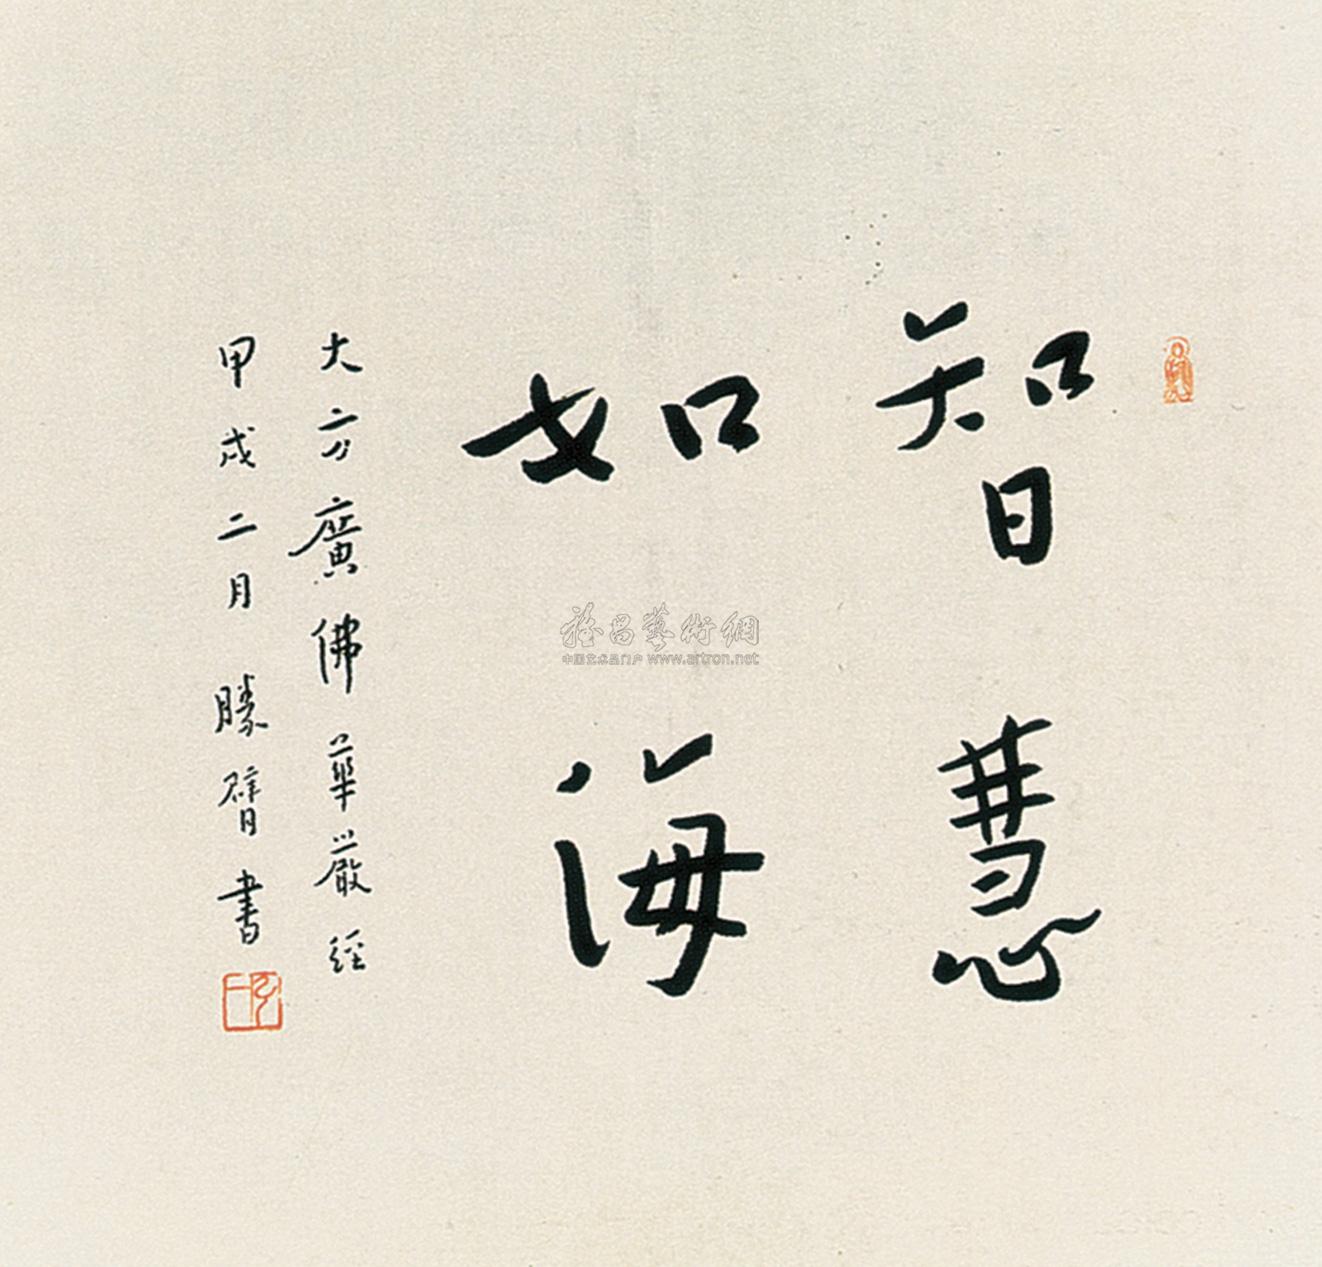 智慧
如海
大方廣佛華嚴經
甲戌二月 勝臂書
雅昌藝術網
中国艺术品门户 www.artron.net